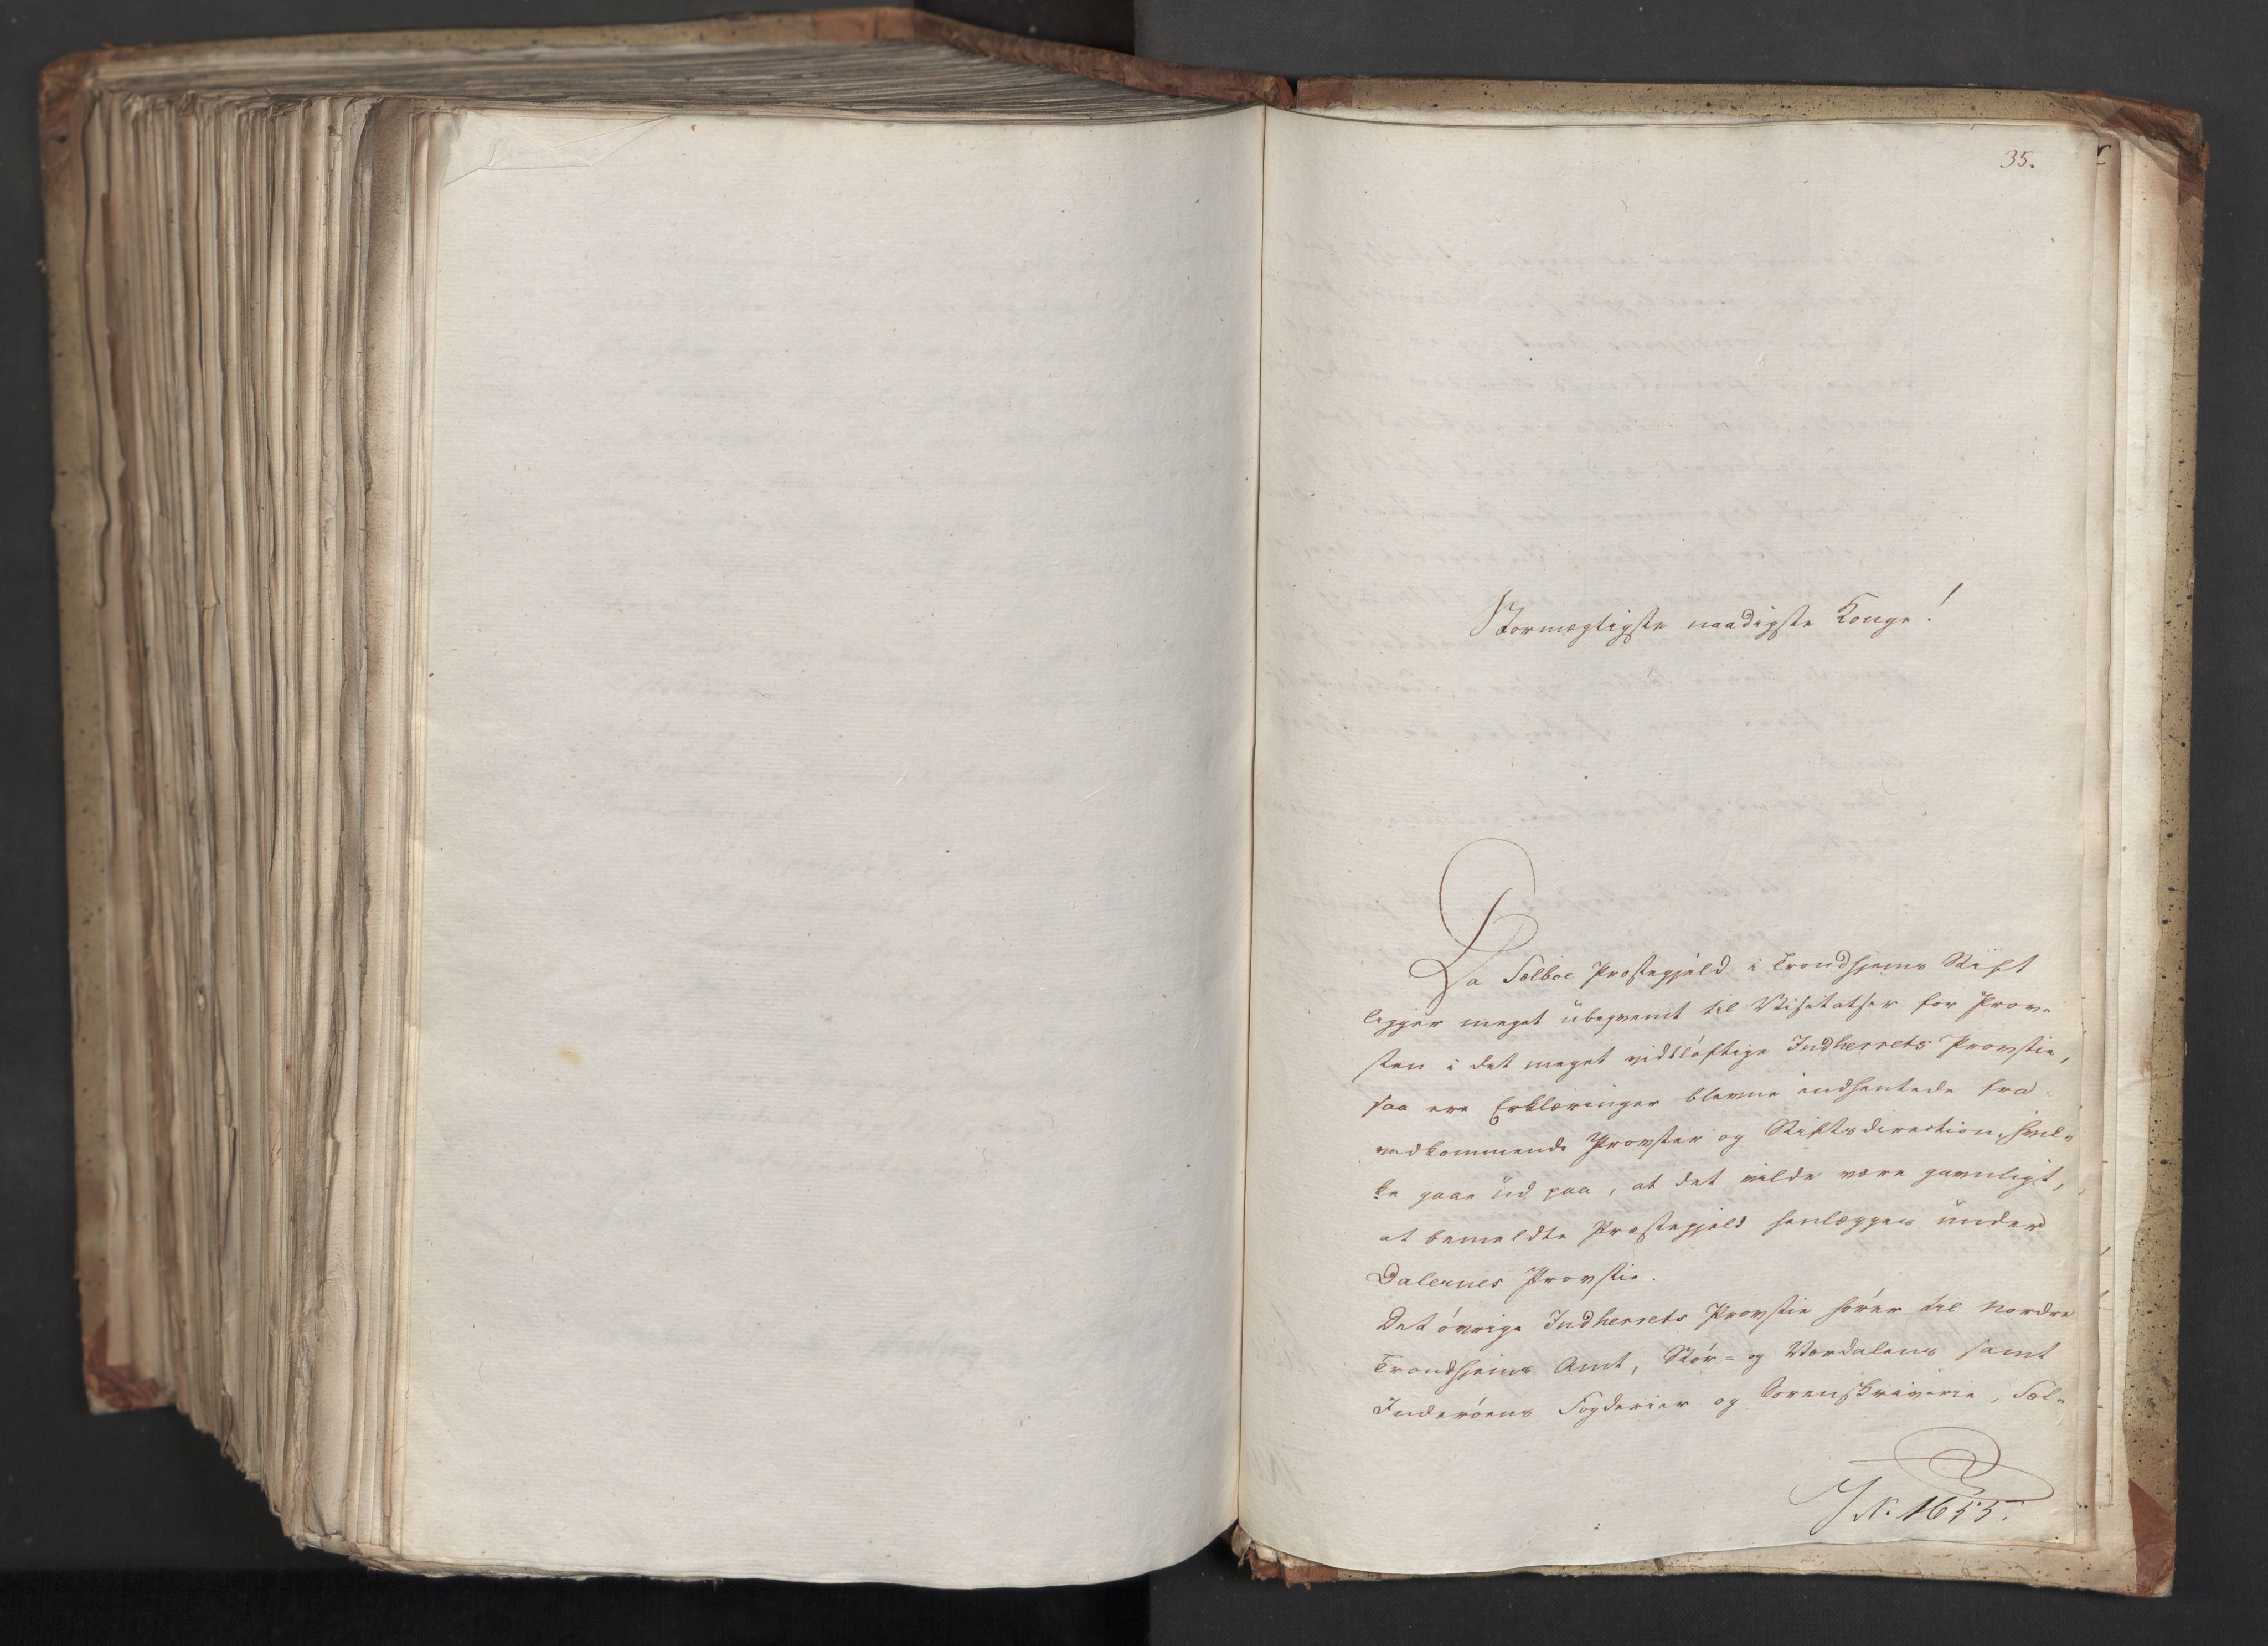 35.
Stormægtigste naadigste Konge!
Da Selboe Præstegjeld i Trondhjems Stift
ligger meget ubeqvemt til Visitatser for Prov-
sten i det meget vidtløftige Indherreds Provstie,
saa ere Erklæringer blevne indhentede fra
vedkommende Provster og Stiftsdirection, hvil-
ke gaae ud paa, at det vilde være gavnligt,
at bemeldte Præstegjeld henlægges under
Dalernes Provstie.
Det øvrige Indherreds Provstie hører til Nordre
Trondhjems Amt, Stør- og Værdalens samt
Inderøens Fogderier og Sorenskriverie, Sel-
N. 1655.